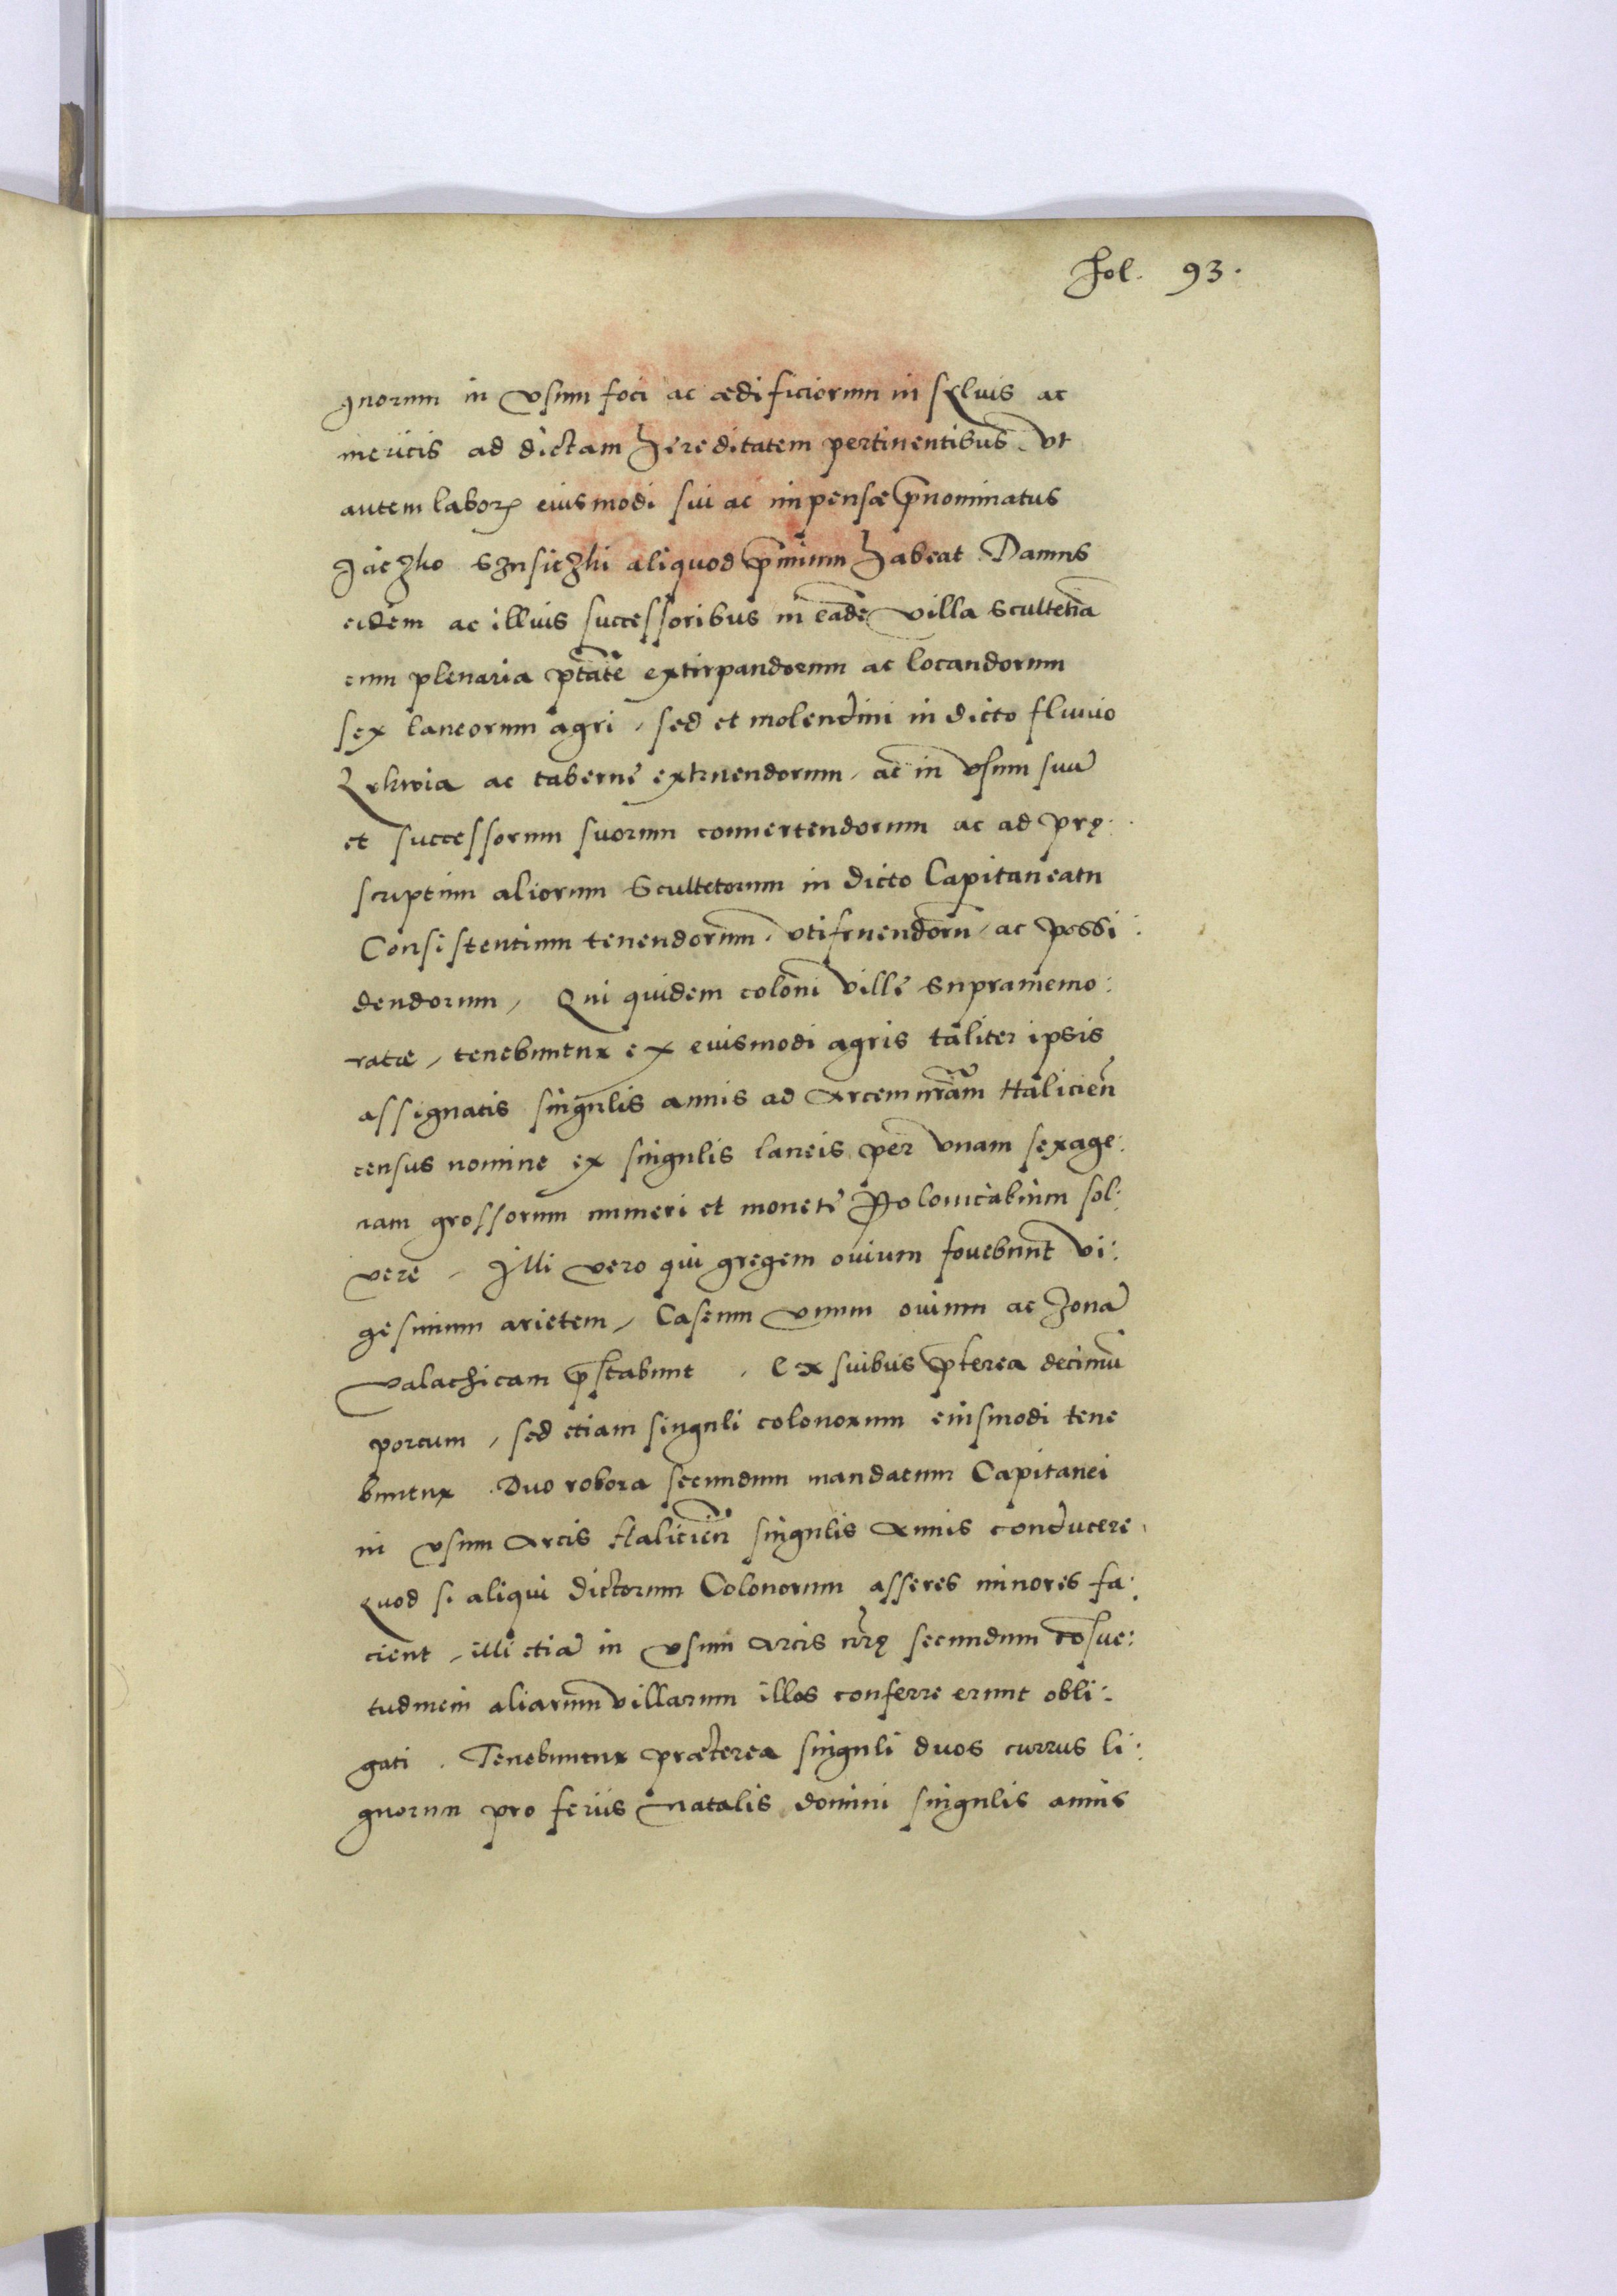 Fol. 93.
gnorum in vsum foci ac ædificiorum in sylvis ac
mericis ad dictam hereditatem pertinentibus. Vt
autem labor; eiusmodi sui ac impensæ p̄nominatus
Jaczko Sznsiczki aliquod p̄mium habeat. Damus
eidem ac illius successoribus in eadē villa Scultetiā
cum plenaria ptāte extirpandorum ac locandorum
sex laneorum agri, sed et molendini in dicto fluuio
ac taberne extruendorum, ac in vsum suū
et successorum suorum conuertendorum ac ad prę:
scriptum aliorum Scultetorum in dicto Capitaneatu
Consistentium tenendorum, vtifruendorū, ac possi:
dendorum, Qui quidem coloni ville supramemo:
ratæ, tenebuntur ex eiusmodi agris taliter ipsis
assignatis singulis annis ad Arcem nrām Halicien̄
census nomine ex singulis laneis per vnam sexage:
nam grossorum numeri et monete Polonicalium sol:
vere, Illi vero qui gregem ouium fouebunt vi:
gesimum arietem, Caseum vnum ouium ac zonā
valachicam p̄stabunt, Ex suibus p̄terea decimū
porcum, sed etiam singuli colonorum eiusmodi tene
buntur. Duo robora secundum mandatum Capitanei
in vsum Arcis Halicien̄ singulis Annis conducere,
Quod si aliqui dictorum Colonorum asseres minores fa:
cient, illi etiā in vsum Arcis nr̄ę secundum cōsue:
tudinem aliarum villarum illos conferre erunt obli:
gati. Tenebuntur præterea singuli duos currus li:
gnorum pro feriis natalis domini singulis annis